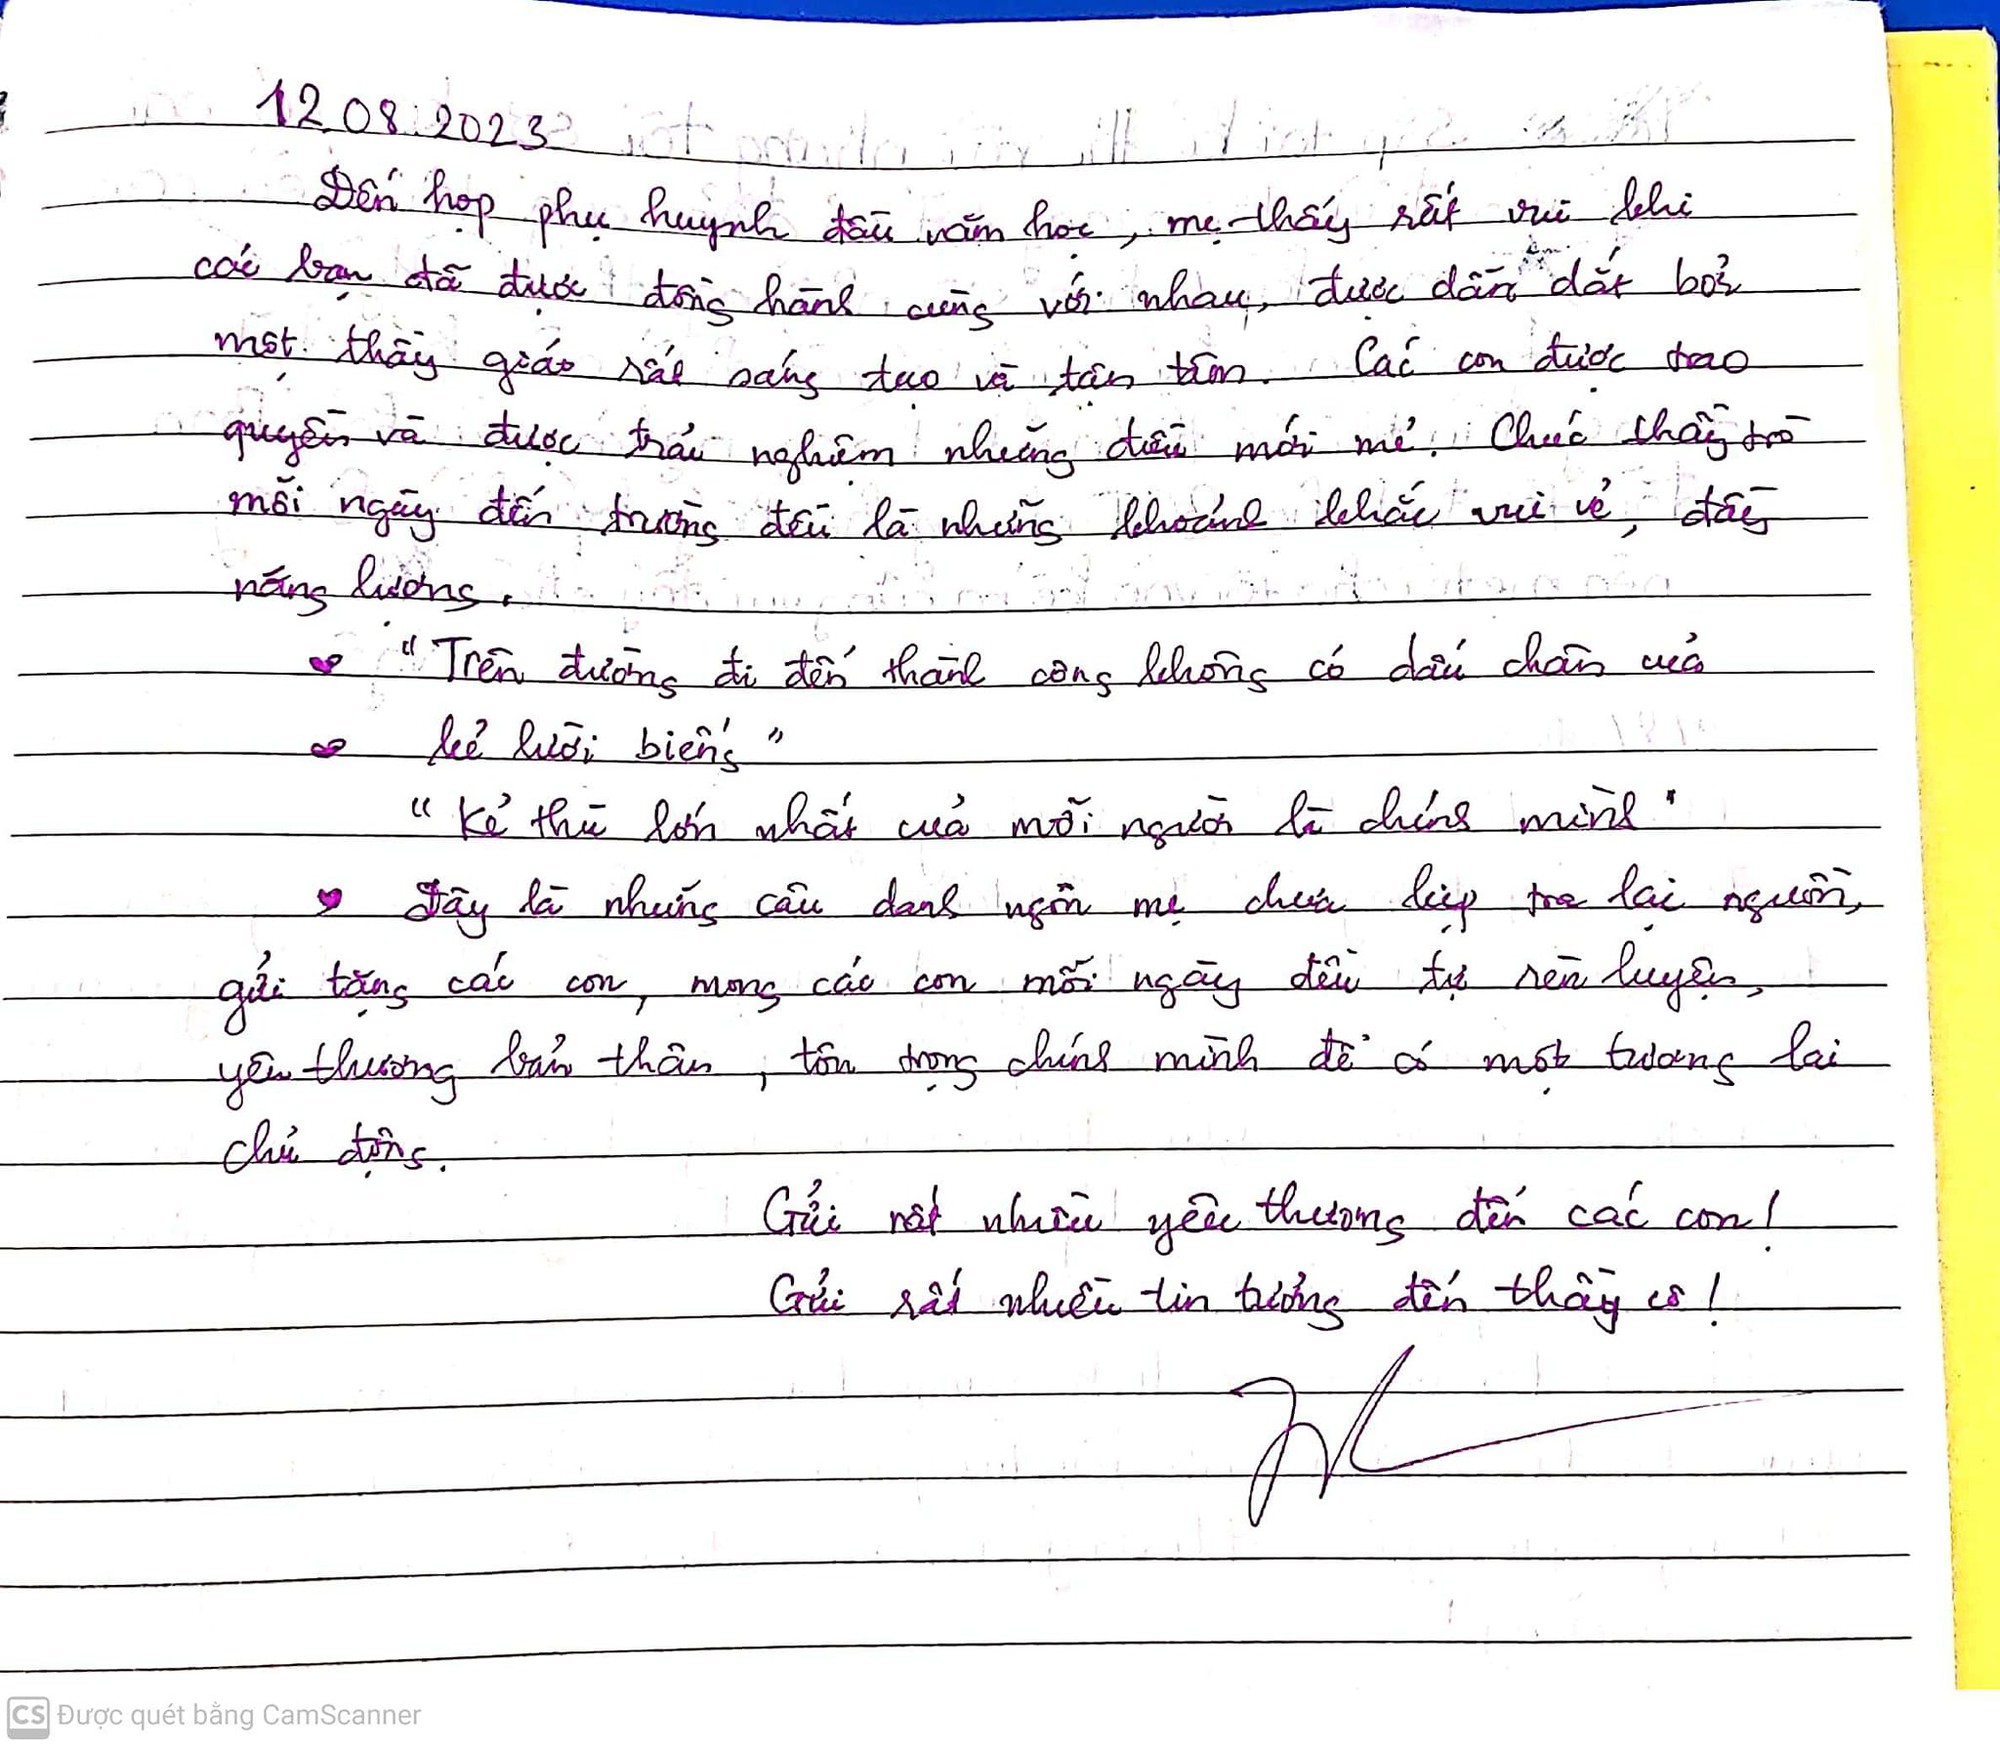 12.08.2023
Đến họp phụ huynh đầu năm học, mẹ thấy rất vui khi
các bạn đã được đồng hành cùng với nhau, được dẫn dắt bởi
một thầy giáo rất sáng tạo và tận tâm. Các con được trao
quyền và được trải nghiệm những điều mới mẻ. Chúc thầy trò
mỗi ngày đến trường đều là những khoảnh khắc vui vẻ, đầy
năng lượng.
"Trên đường đi đến thành công không có dấu chân của
kẻ lười biếng"
"Kẻ thù lớn nhất của mỗi người là chính mình"
Đây là những câu danh ngôn mẹ chưa kịp trả lại người,
gửi tặng các con, mong các con mỗi ngày đều tự rèn luyện,
yêu thương bản thân, tôn trọng chính mình để có một tương lai
chủ động.
Gửi rất nhiều yêu thương đến các con!
Gửi rất nhiều tin tưởng đến thầy cô!
CS Được quét bằng CamScanner